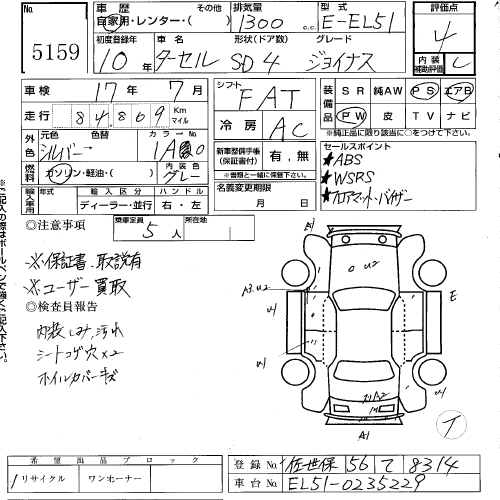 5159
車歴 自家用・レンター・( ) その他
排気量 1300 cc
型式 E-EL51
評価点 4
初度登録年 10年
車名 ターセル
形状(ドア数) SD4
グレード ジョイナス
内装補助評価 C
車検 17年 7月
シフト FAT
装備品 SR 純AW PS エアB
PW 皮 TV ナビ
※純正品に限り該当に○をつけて下さい。
走行 84,809 Km マイル
冷房 AC
外色 元色 シルバー 色替 カラーNo 1A0
新車整備手帳(保証書付) 有,無
※書類と一緒に保管下さい。
セールスポイント
★ABS
★WSRS
★フロアマット・バイザー
燃料 ガソリン・軽油・( ) 内装色 グレー
名義変更期限 月 日
輸入車用 輸入区分 ディーラー・並行 ハンドル 右・左
◎注意事項
乗車定員 5人
所在地
※保証書、取説有
※ユーザー買取
◎検査員報告
内装しみ,汚れ
シートコゲ穴×2
ホイルカバーキズ
※ご記入の際はボールペンで強くご記入下さい。
A1
U2
A3.U2
U1
E
A2
A1
希望出品ブロック
1 リサイクル ワンオーナー
登録No. 佐世保 56 て 8314
車台No. EL51-0235229